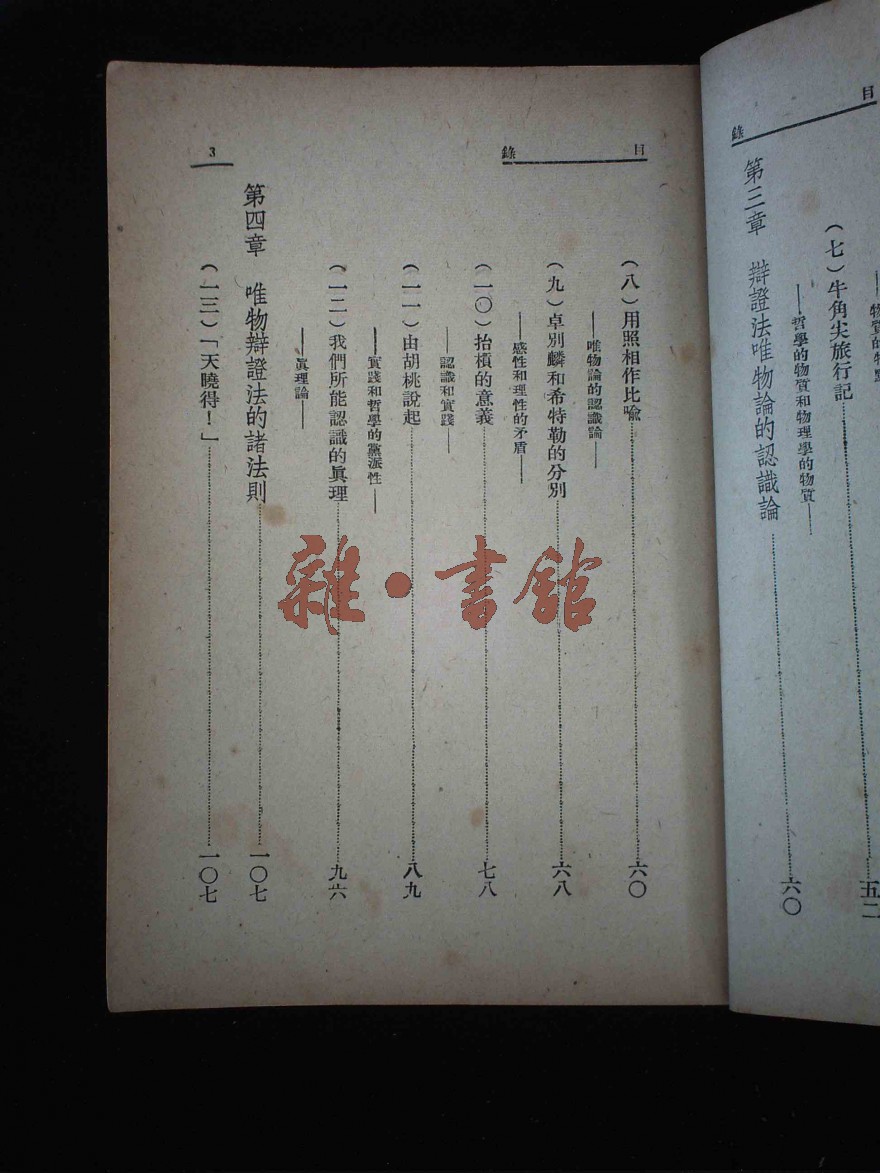 目錄
物質的特點
(七)牛角尖旅行記……五二
——哲學的物質和物理學的物質——
第三章 辯證法唯物論的認識論……六〇
目錄
3
(八)用照相作比喻……六〇
——唯物論的認識論——
(九)卓別麟和希特勒的分別……六八
——感性和理性的矛盾——
(一〇)抬槓的意義……七八
——認識和實踐——
(一一)由胡桃說起……八九
——實踐和哲學的黨派性——
(一二)我們所能認識的眞理……九六
——眞理論——
第四章 唯物辯證法的諸法則……一〇七
(一三)「天曉得!」……一〇七
雜·書館